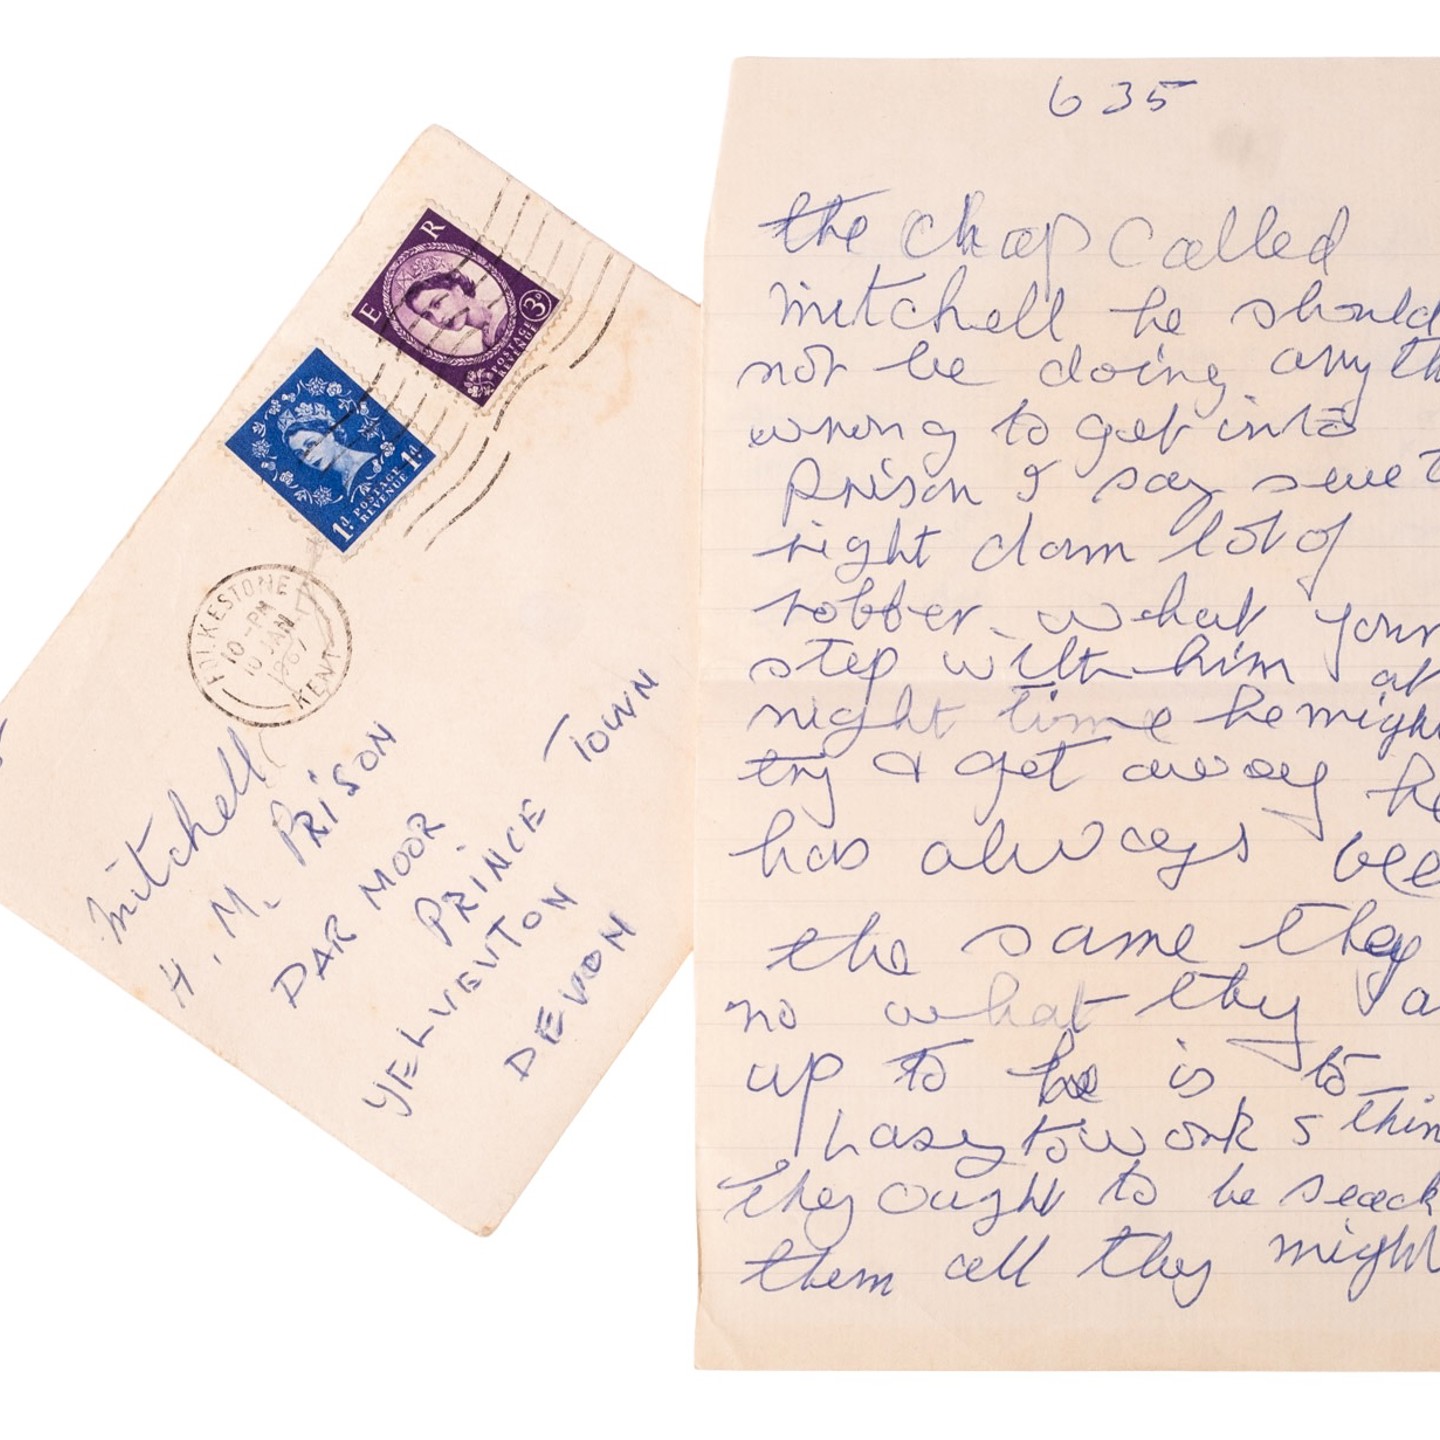 E R
3D
POSTAGE
REVENUE
1d. POSTAGE 1d.
REVENUE
FOLKESTONE
10 - PM
10 JAN
1967
KENT
Mitchell
H. M. PRISON
DAR MOOR
PRINCE TOWN
YELVEVTON
DEVON
635
the chap called
mitchell he should
not be doing any th
wrong to get into
prison I say
right dam lot of
robber what your
step with him at
night time he might
try & get away he
has always bee
the same they
no what they a
up to he is to
lasey to work s thin
they ought to be seack
them all they might